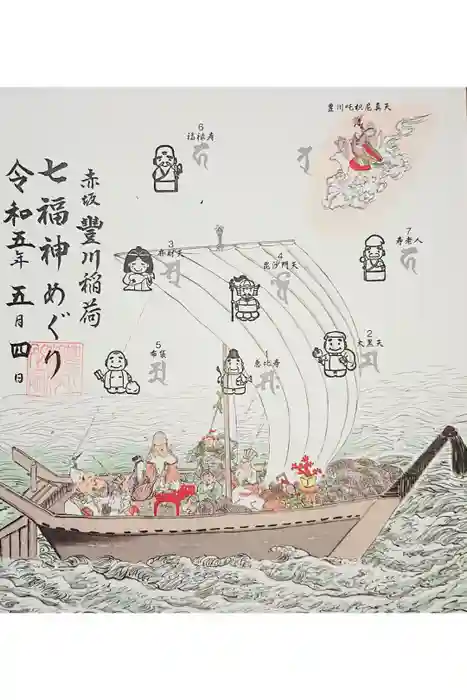 豊川吒枳尼真天
赤坂 豐川稲荷
七福神めぐり
令和五年 五月四日
6
福禄寿
7
寿老人
3
弁財天
4
毘沙門天
2
大黒天
5
布袋
1
恵比寿